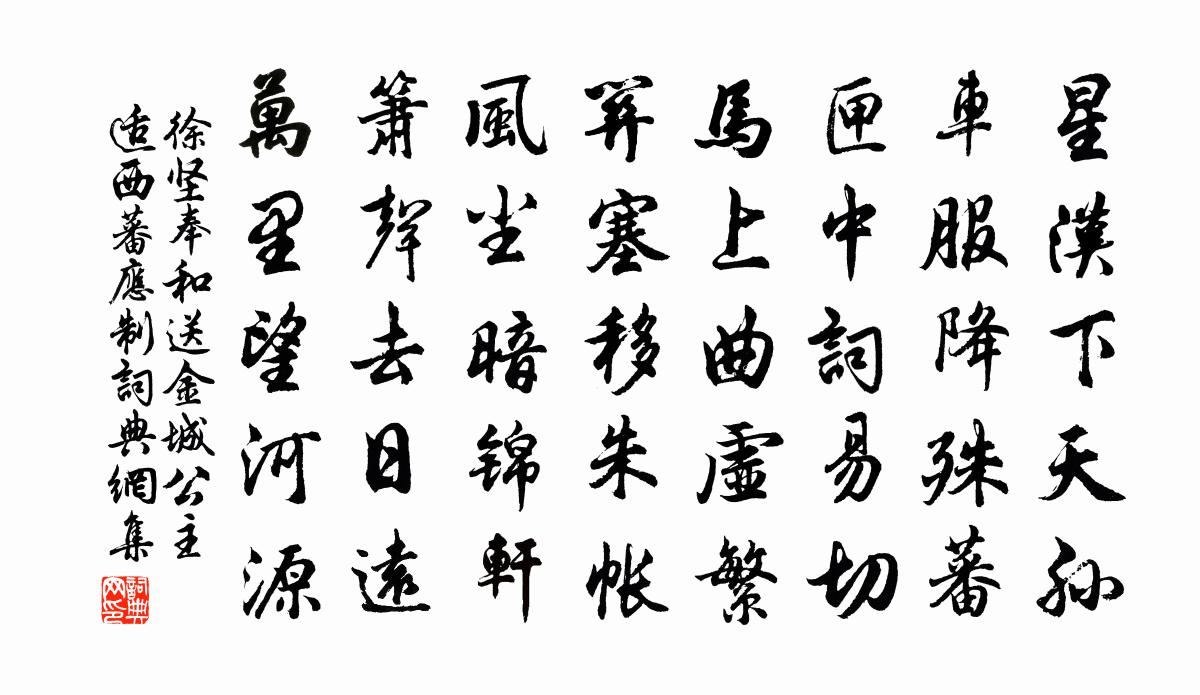 星漢下天孫
車服降殊蕃
匣中詞易切
馬上曲虛繁
關塞移朱帳
風塵暗錦軒
簫聲去日遠
萬里望河源
徐坚奉和送金城公主
适西蕃應制詞典網集
詞典網印